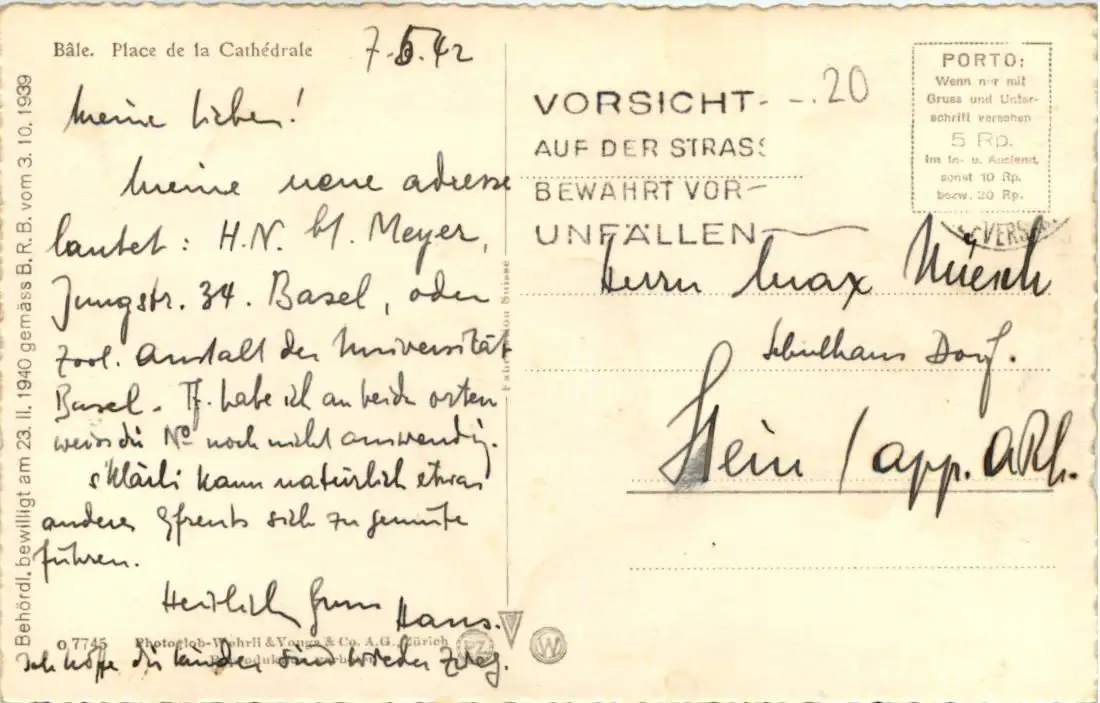 Bâle. Place de la Cathédrale
7.5.42
Meine Lieben!
Meine neue adresse
lautet: H.N. bl. Meyer,
Jungstr. 34. Basel, oder
Zool. Anstalt der Universität
Basel. Tf. habe ich an beiden orten
weiss die No noch nicht auswendig.
s'Kläili kann natürlich etwas
anderes Gfreuts sich zu gemüte
führen.
Herzlich Gruss Hans.
Ich hoffe die Kinder sind wieder zweg.
Behördl. bewilligt am 23. II. 1940 gemäss B. R. B. vom 3. 10. 1939
o 7745 Photoglob-Wehrli & Vouga & Co. A.G., Zürich
PZ
W
Fabrication Suisse
VORSICHT
AUF DER STRASS
BEWAHRT VOR
UNFÄLLEN
20
PORTO:
Wenn nur mit
Gruss und Unter-
schrift versehen
5 Rp.
im In- u. Ausland,
sonst 10 Rp.
bezw. 20 Rp.
Herrn Max Nüesch
Schulhaus Dorf.
Stein / app. ARh.